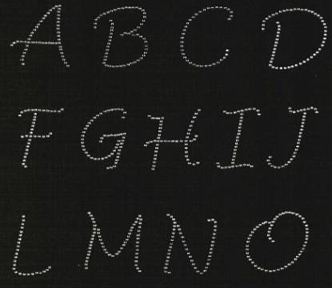 A B C D
F G H I J
L M N O